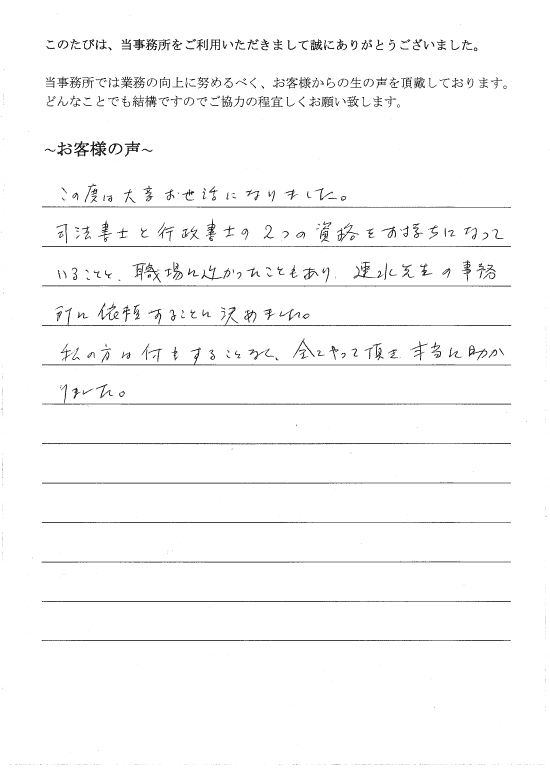 このたびは、当事務所をご利用いただきまして誠にありがとうございました。
当事務所では業務の向上に努めるべく、お客様からの生の声を頂戴しております。
どんなことでも結構ですのでご協力の程宜しくお願い致します。
~お客様の声~
この度は大変お世話になりました。
司法書士と行政書士の2つの資格をお持ちになって
いることと、職場に近かったこともあり、速水先生の事務
所に依頼することに決めました。
私の方は何もすることなく、全てやって頂き本当に助か
りました。